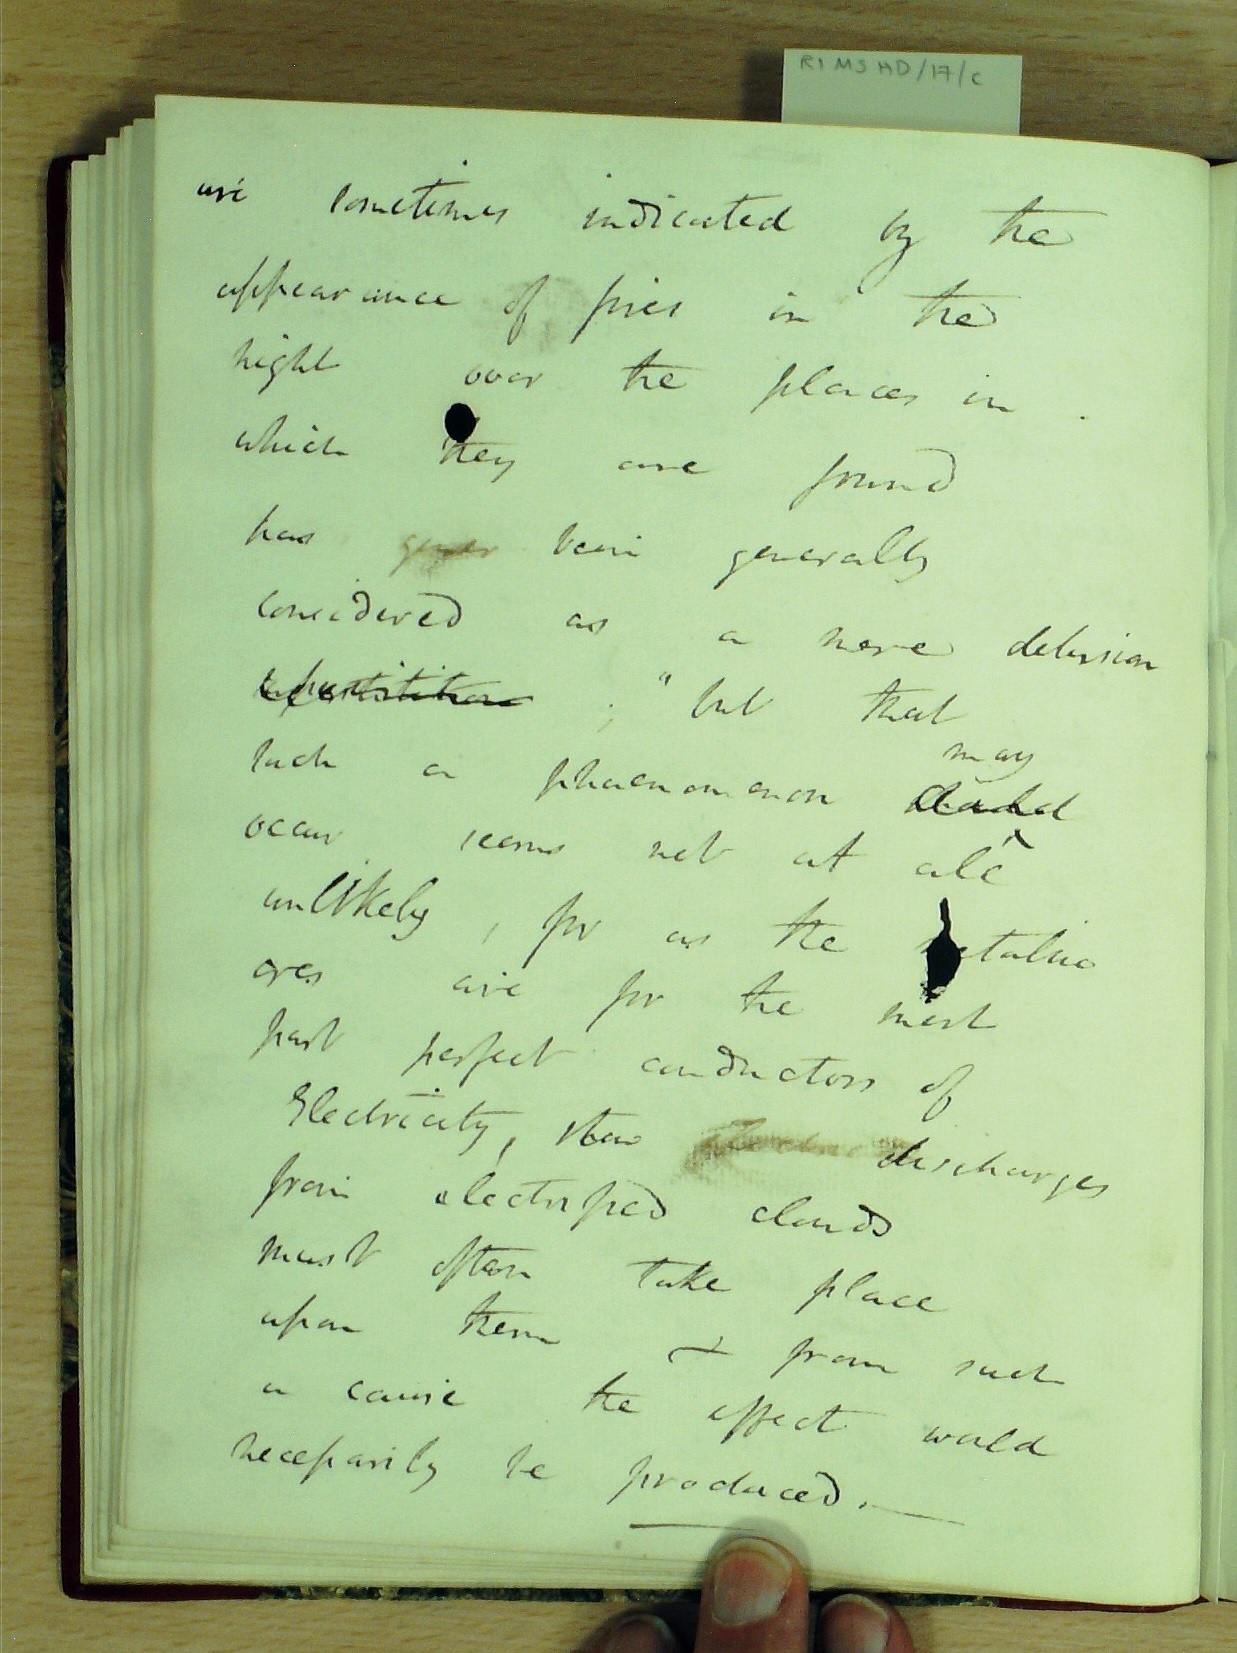 RI MS HD/17/C
are sometimes indicated by the
appearance of fires in the
night over the places in
which they are found
has gener been generally
considered as a mere delusion
superstition ; " but that
such a phaenomenon may could
occur seems not at all
unlikely, for as the metallic
ores are for the most
part perfect conductors of
Electricity, then discharges
from electrified clouds
must often take place
upon them & from such
a cause the effect would
necessarily be produced. —